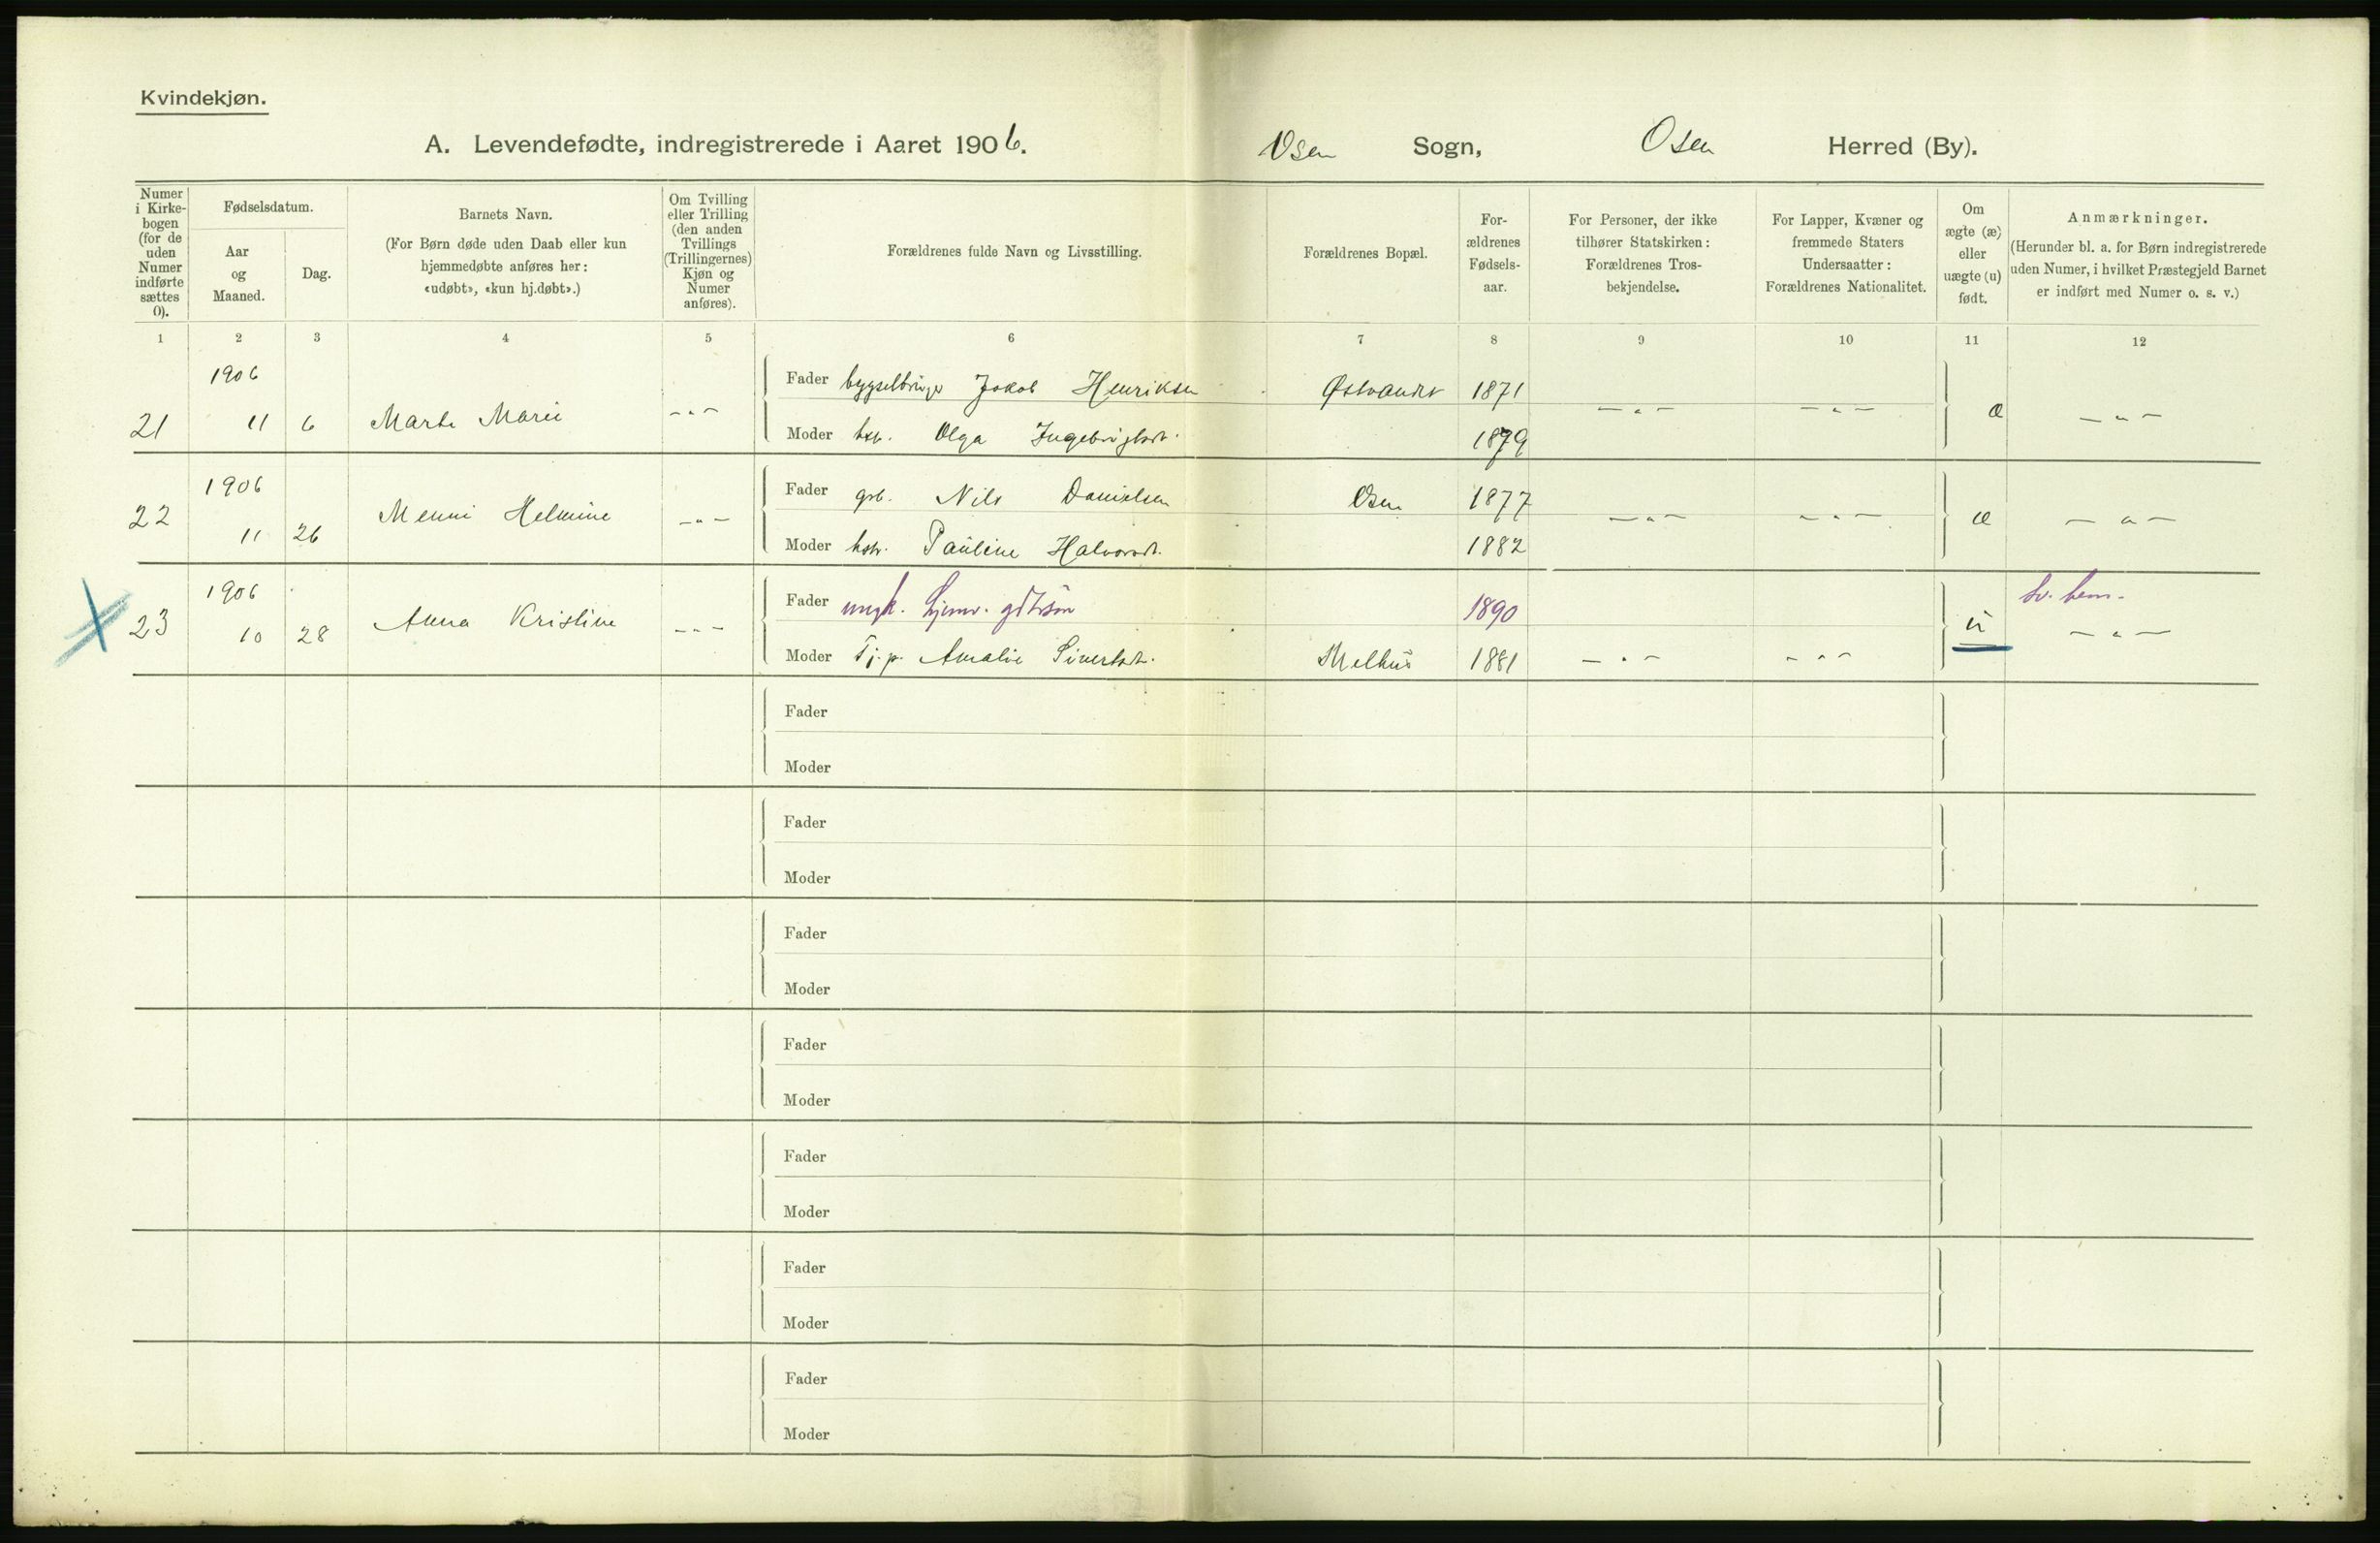 Kvindekjøn.
A. Levendefødte, indregistrerede i Aaret 1906.
Osen Sogn, Osen Herred (By).
Numer i Kirkebogen (for de uden Numer indførte sættes 0).
Fødselsdatum.
Aar og Maaned.
Dag.
Barnets Navn.
(For Børn døde uden Daab eller kun
hjemmedøbte anføres her:
«udøbt», «kun hj.døbt».)
Om Tvilling
eller Trilling
(den anden
Tvillings
(Trillingernes)
Kjøn og
Numer
anføres).
Forældrenes fulde Navn og Livsstilling.
Forældrenes Bopæl.
For-
ældrenes
Fødsels-
aar.
For Personer, der ikke
tilhører Statskirken:
Forældrenes Tros-
bekjendelse.
For Lapper, Kvæner og
fremmede Staters
Undersaatter:
Forældrenes Nationalitet.
Om
ægte (æ)
eller
uægte (u)
født.
Anmærkninger.
(Herunder bl. a. for Børn indregistrerede
uden Numer, i hvilket Præstegjeld Barnet
er indført med Numer o. s. v.)
1 2 3 4 5 6 7 8 9 10 11 12
1906
Fader Jakob Henriksen 1871
21 11 6 Marte Marie — " — — " — — " — æ — " —
Moder Olga 1879
1906
Fader grb. Nils Danielsen Osen 1877
22 11 26 Menni Helmine — " — — " — — " — æ — " —
Moder hstr. Pauline Halvorsdt. 1882
1906
Fader ungk. 1890
23 10 28 Anna Kristine — " — u — " —
Moder Tj.p. Amalie Sivertsdt. Melhus 1881 — " — — " —
Fader
Moder
Fader
Moder
Fader
Moder
Fader
Moder
Fader
Moder
Fader
Moder
Fader
Moder